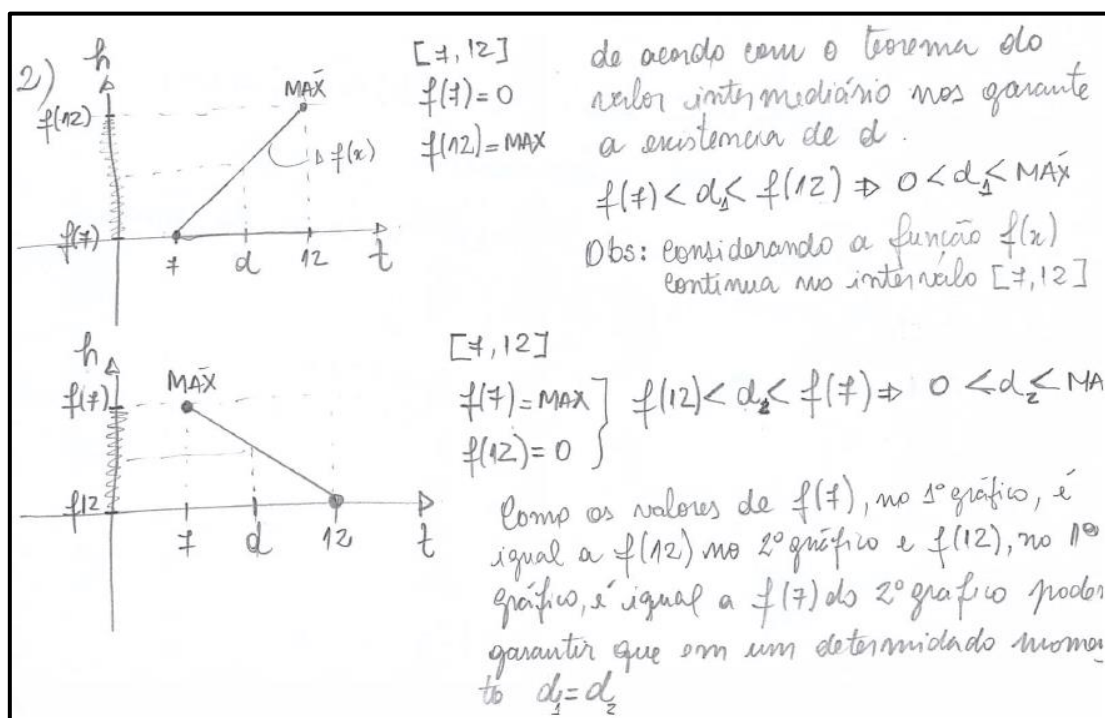 2)
h
f(12)
f(7)
MAX
f(x)
7 d 12 t
[7,12]
f(7)=0
f(12)=MAX
de acordo com o teorema do
valor intermediário nos garante
a existencia de d.
f(7)<d₁<f(12)⇒ 0<d₁<MÁX
Obs: considerando a função f(x)
continua no intervalo [7,12]
h
f(7)
f12
MAX
7 d 12 t
[7,12]
f(7)=MAX
f(12)=0
f(12)<d₂<f(7)⇒ 0<d₂<MA
Como os valores de f(7), no 1º gráfico, é
igual a f(12) no 2º gráfico e f(12), no 1º
gráfico, é igual a f(7) do 2º grafico podem
garantir que em um determidado momen
to d₁=d₂